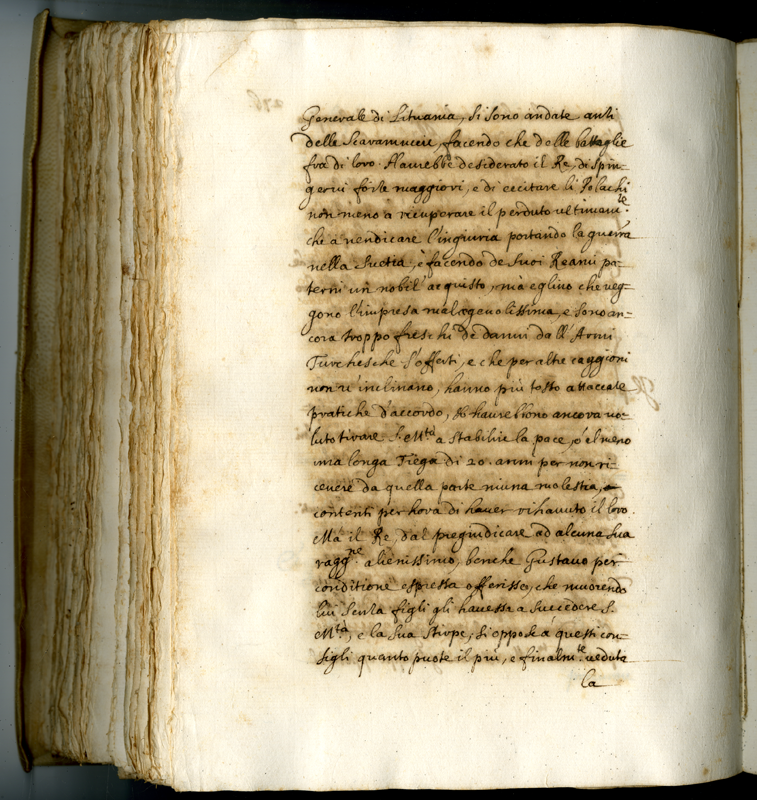 Generale di Lituania, si sono andate anti
delle Scaramuccie, facendo che delle battaglie
frà di loro. Haurebbe desiderato il Re, di spin-
gerui forze maggiori, e di eccitare li Polachi
non meno a ricuperare il perduto ultimam.te
che a uendicare l'ingiuria portando la guerra
nella Suetia, e facendo de suoi Reami pa-
terni un nobil' acquisto, mà eglino che ueg-
gono l'impresa malageuolissima, e sono an-
cora troppo freschi de danni dall' Armi
Turchesche sofferti, e che per altre caggioni
non u'inclinano, hanno più tosto attaccate
pratiche d'accordo, et haurebbono ancora uo-
luto tirare S. M.tà a stabilire la pace, ò el meno
una longa Triega di 20. anni per non ri-
ceuere da quella parte niuna molestia, e
contenti per hora di hauer rihauuto il loro.
Mà il Re, dal pregiudicare ad alcuna sua
ragg.ne alienissimo, benche Gustauo per
conditione espressa offerisse, che morendo
lui senza figli gli hauessa a succedere S.
M.tà, e la sua stirpe, si oppose à questi con-
sigli quanto puote il più, e finalm.te ueduta
la